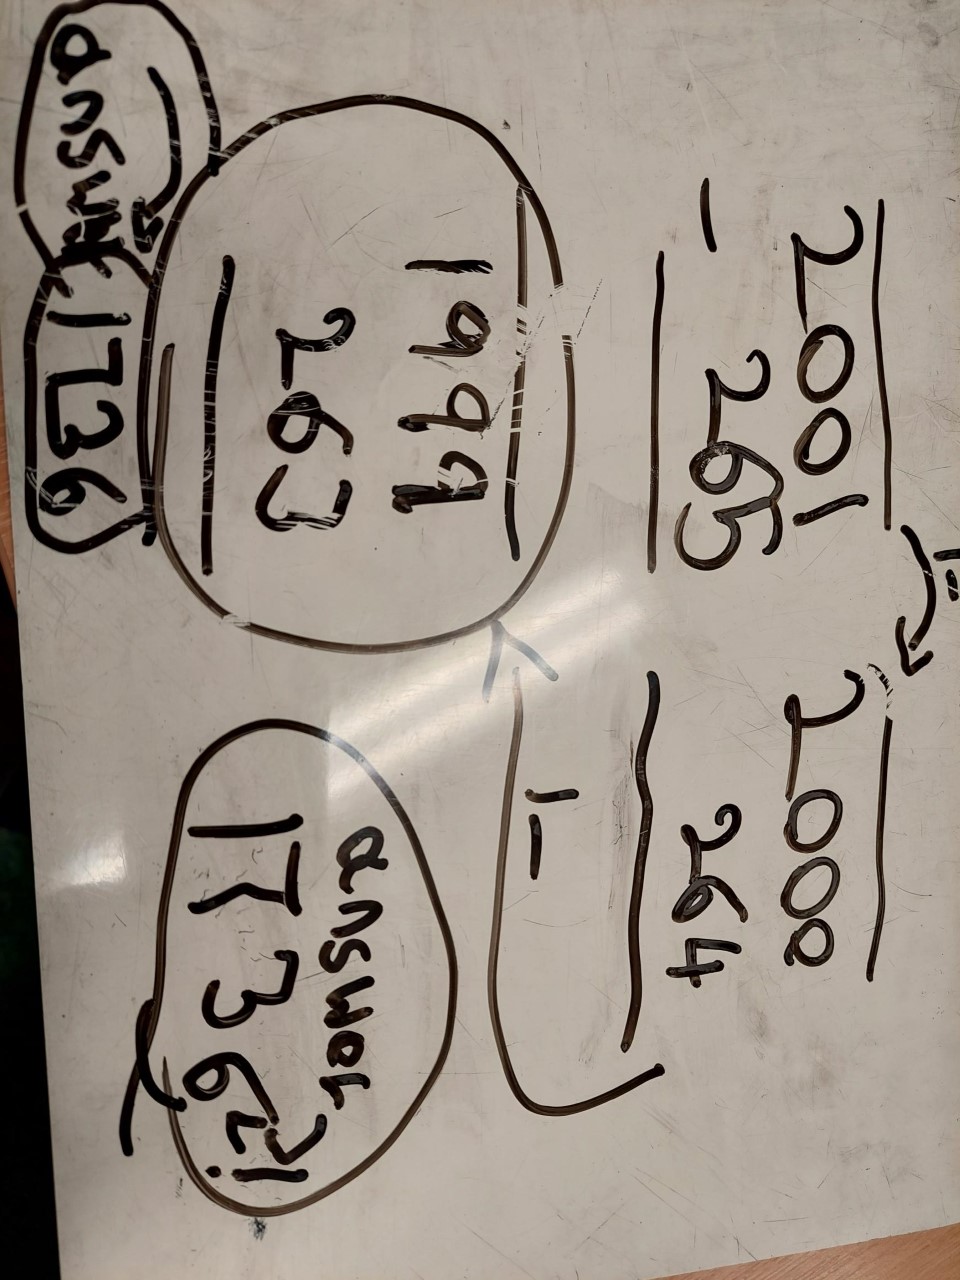 2001
- 265
-1
2000
264
-1
1999
263
answer
1736
answer
1736